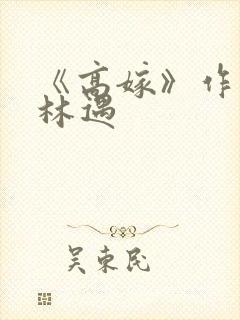 《高嫁》作
林遇
吴东民